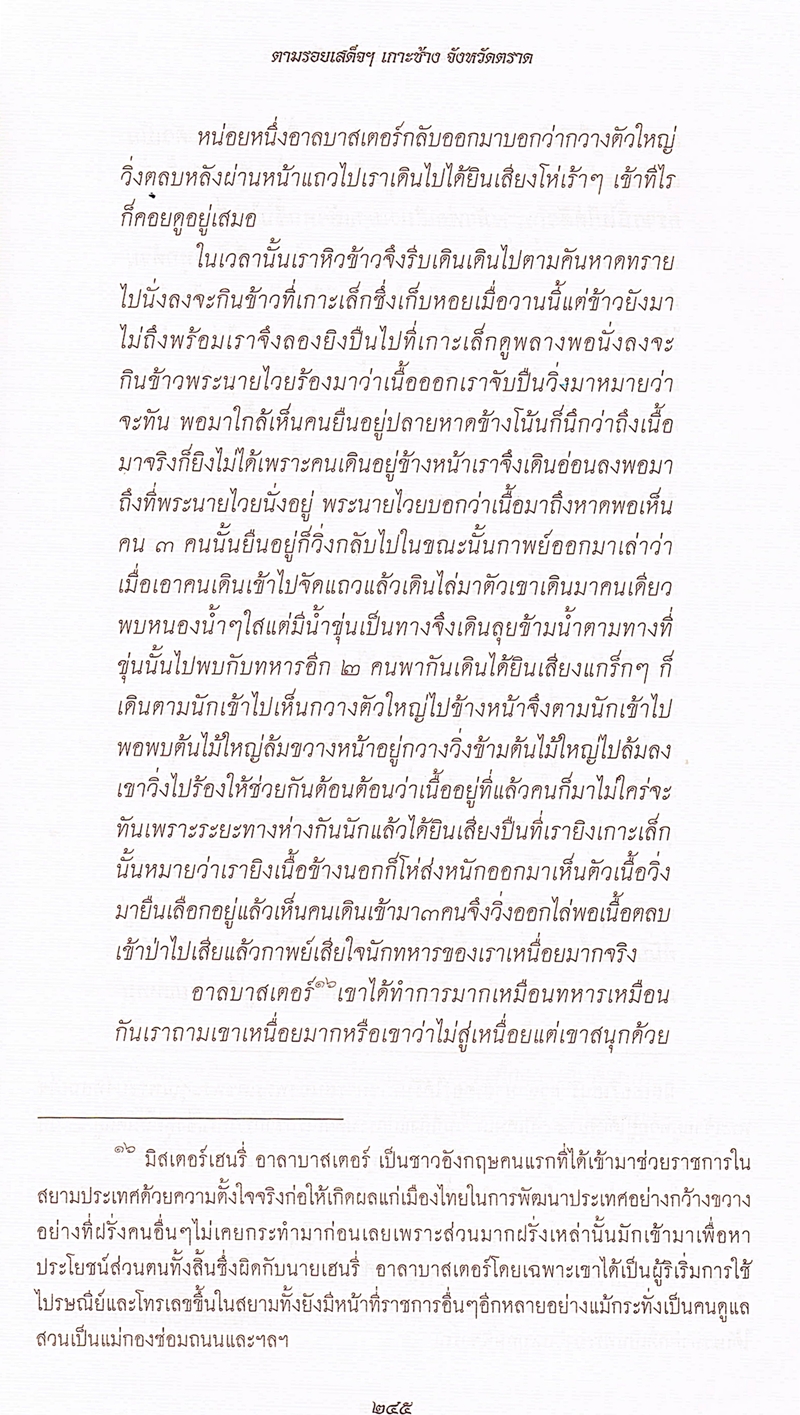 ตามรอยเสด็จฯ เกาะช้าง จังหวัดตราด
หน่อยหนึ่งอาลบาสเตอร์กลับออกมาบอกว่ากวางตัวใหญ่
วิ่งตลบหลังผ่านหน้าแถวไปเราเดินไปได้ยินเสียงโห่เร้าๆ เข้าทีไร
ก็คอยดูอยู่เสมอ
ในเวลานั้นเราหิวข้าวจึงรีบเดินเดินไปตามคันหาดทราย
ไปนั่งลงจะกินข้าวที่เกาะเล็กซึ่งเก็บหอยเมื่อวานนี้แต่ข้าวยังมา
ไม่ถึงพร้อมเราจึงลองยิงปืนไปที่เกาะเล็กดูพลางพอนั่งลงจะ
กินข้าวพระนายไวยร้องมาว่าเนื้อออกเราจับปืนวิ่งมาหมายว่า
จะทัน พอมาใกล้เห็นคนยืนอยู่ปลายหาดข้างโน้นก็นึกว่าถึงเนื้อ
มาจริงก็ยิงไม่ได้เพราะคนเดินอยู่ข้างหน้าเราจึงเดินอ่อนลงพอมา
ถึงที่พระนายไวยนั่งอยู่ พระนายไวยบอกว่าเนื้อมาถึงหาดพอเห็น
คน ๓ คนนั้นยืนอยู่ก็วิ่งกลับไปในขณะนั้นกาพย์ออกมาเล่าว่า
เมื่อเอาคนเดินเข้าไปจัดแถวแล้วเดินไล่มาตัวเขาเดินมาคนเดียว
พบหนองน้ำๆใสแต่มีน้ำขุ่นเป็นทางจึงเดินลุยข้ามน้ำตามทางที่
ขุ่นนั้นไปพบกับทหารอีก ๒ คนพากันเดินได้ยินเสียงแกร็กๆ ก็
เดินตามนักเข้าไปเห็นกวางตัวใหญ่ไปข้างหน้าจึงตามนักเข้าไป
พอพบต้นไม้ใหญ่ล้มขวางหน้าอยู่กวางวิ่งข้ามต้นไม้ใหญ่ไปล้มลง
เขาวิ่งไปร้องให้ช่วยกันต้อนต้อนว่าเนื้ออยู่ที่แล้วคนก็มาไม่ใคร่จะ
ทันเพราะระยะทางห่างกันนักแล้วได้ยินเสียงปืนที่เรายิงเกาะเล็ก
นั้นหมายว่าเรายิงเนื้อข้างนอกก็โห่ส่งหนักออกมาเห็นตัวเนื้อวิ่ง
มายืนเลือกอยู่แล้วเห็นคนเดินเข้ามา๓คนจึงวิ่งออกไล่พอเนื้อตลบ
เข้าป่าไปเสียแล้วกาพย์เสียใจนักทหารของเราเหนื่อยมากจริง
อาลบาสเตอร์๑๖เขาได้ทำการมากเหมือนทหารเหมือน
กันเราถามเขาเหนื่อยมากหรือเขาว่าไม่สู่เหนื่อยแต่เขาสนุกด้วย
๑๖ มิสเตอร์เฮนรี่ อาลาบาสเตอร์ เป็นชาวอังกฤษคนแรกที่ได้เข้ามาช่วยราชการใน
สยามประเทศด้วยความตั้งใจจริงก่อให้เกิดผลแก่เมืองไทยในการพัฒนาประเทศอย่างกว้างขวาง
อย่างที่ฝรั่งคนอื่นๆไม่เคยกระทำมาก่อนเลยเพราะส่วนมากฝรั่งเหล่านั้นมักเข้ามาเพื่อหา
ประโยชน์ส่วนตนทั้งสิ้นซึ่งผิดกับนายเฮนรี่ อาลาบาสเตอร์โดยเฉพาะเขาได้เป็นผู้ริเริ่มการใช้
ไปรษณีย์และโทรเลขขึ้นในสยามทั้งยังมีหน้าที่ราชการอื่นๆอีกหลายอย่างแม้กระทั่งเป็นคนดูแล
สวนเป็นแม่กองซ่อมถนนและฯลฯ
๒๔๕